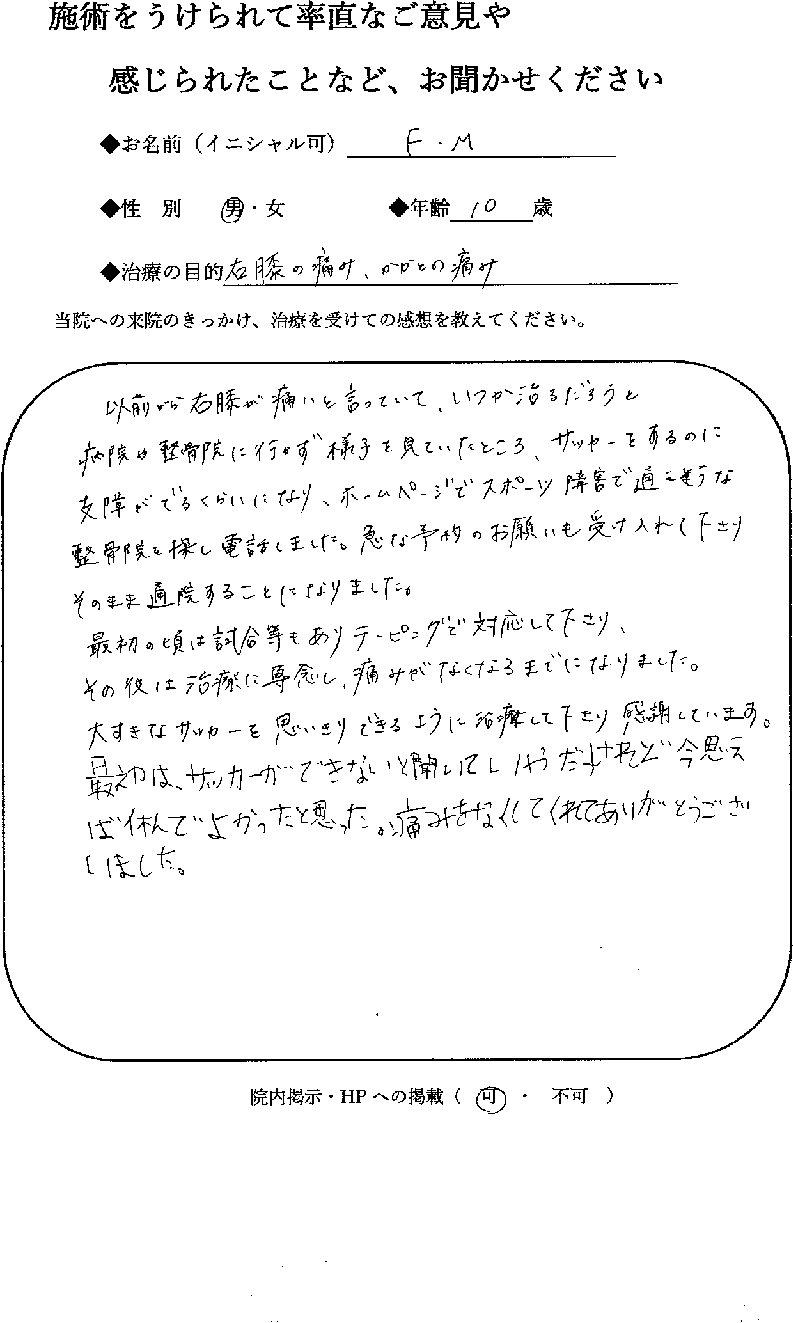 施術をうけられて率直なご意見や
感じられたことなど、お聞かせください
◆お名前（イニシャル可） F・M
◆性 別 男・女 ◆年齢 10 歳
◆治療の目的 右膝の痛み、かかとの痛み
当院への来院のきっかけ、治療を受けての感想を教えてください。
以前から右膝が痛いと言っていて、いつか治るだろうと
病院や整骨院に行かず様子を見ていたところ、サッカーをするのに
支障がでるくらいになり、ホームページでスポーツ障害で通えそうな
整骨院を探し電話しました。急な予約のお願いも受け入れて下さり
そのまま通院することになりました。
最初の頃は試合等もありテーピングで対応して下さり、
その後は治療に専念し、痛みがなくなるまでになりました。
大すきなサッカーを思いきりできるように治療して下さり感謝しています。
最初は、サッカーができないと聞いていやだったけれど今思え
ば休んでよかったと思った。痛みをなくしてくれてありがとうござ
いました。
院内掲示・HPへの掲載（ 可 ・ 不可 ）